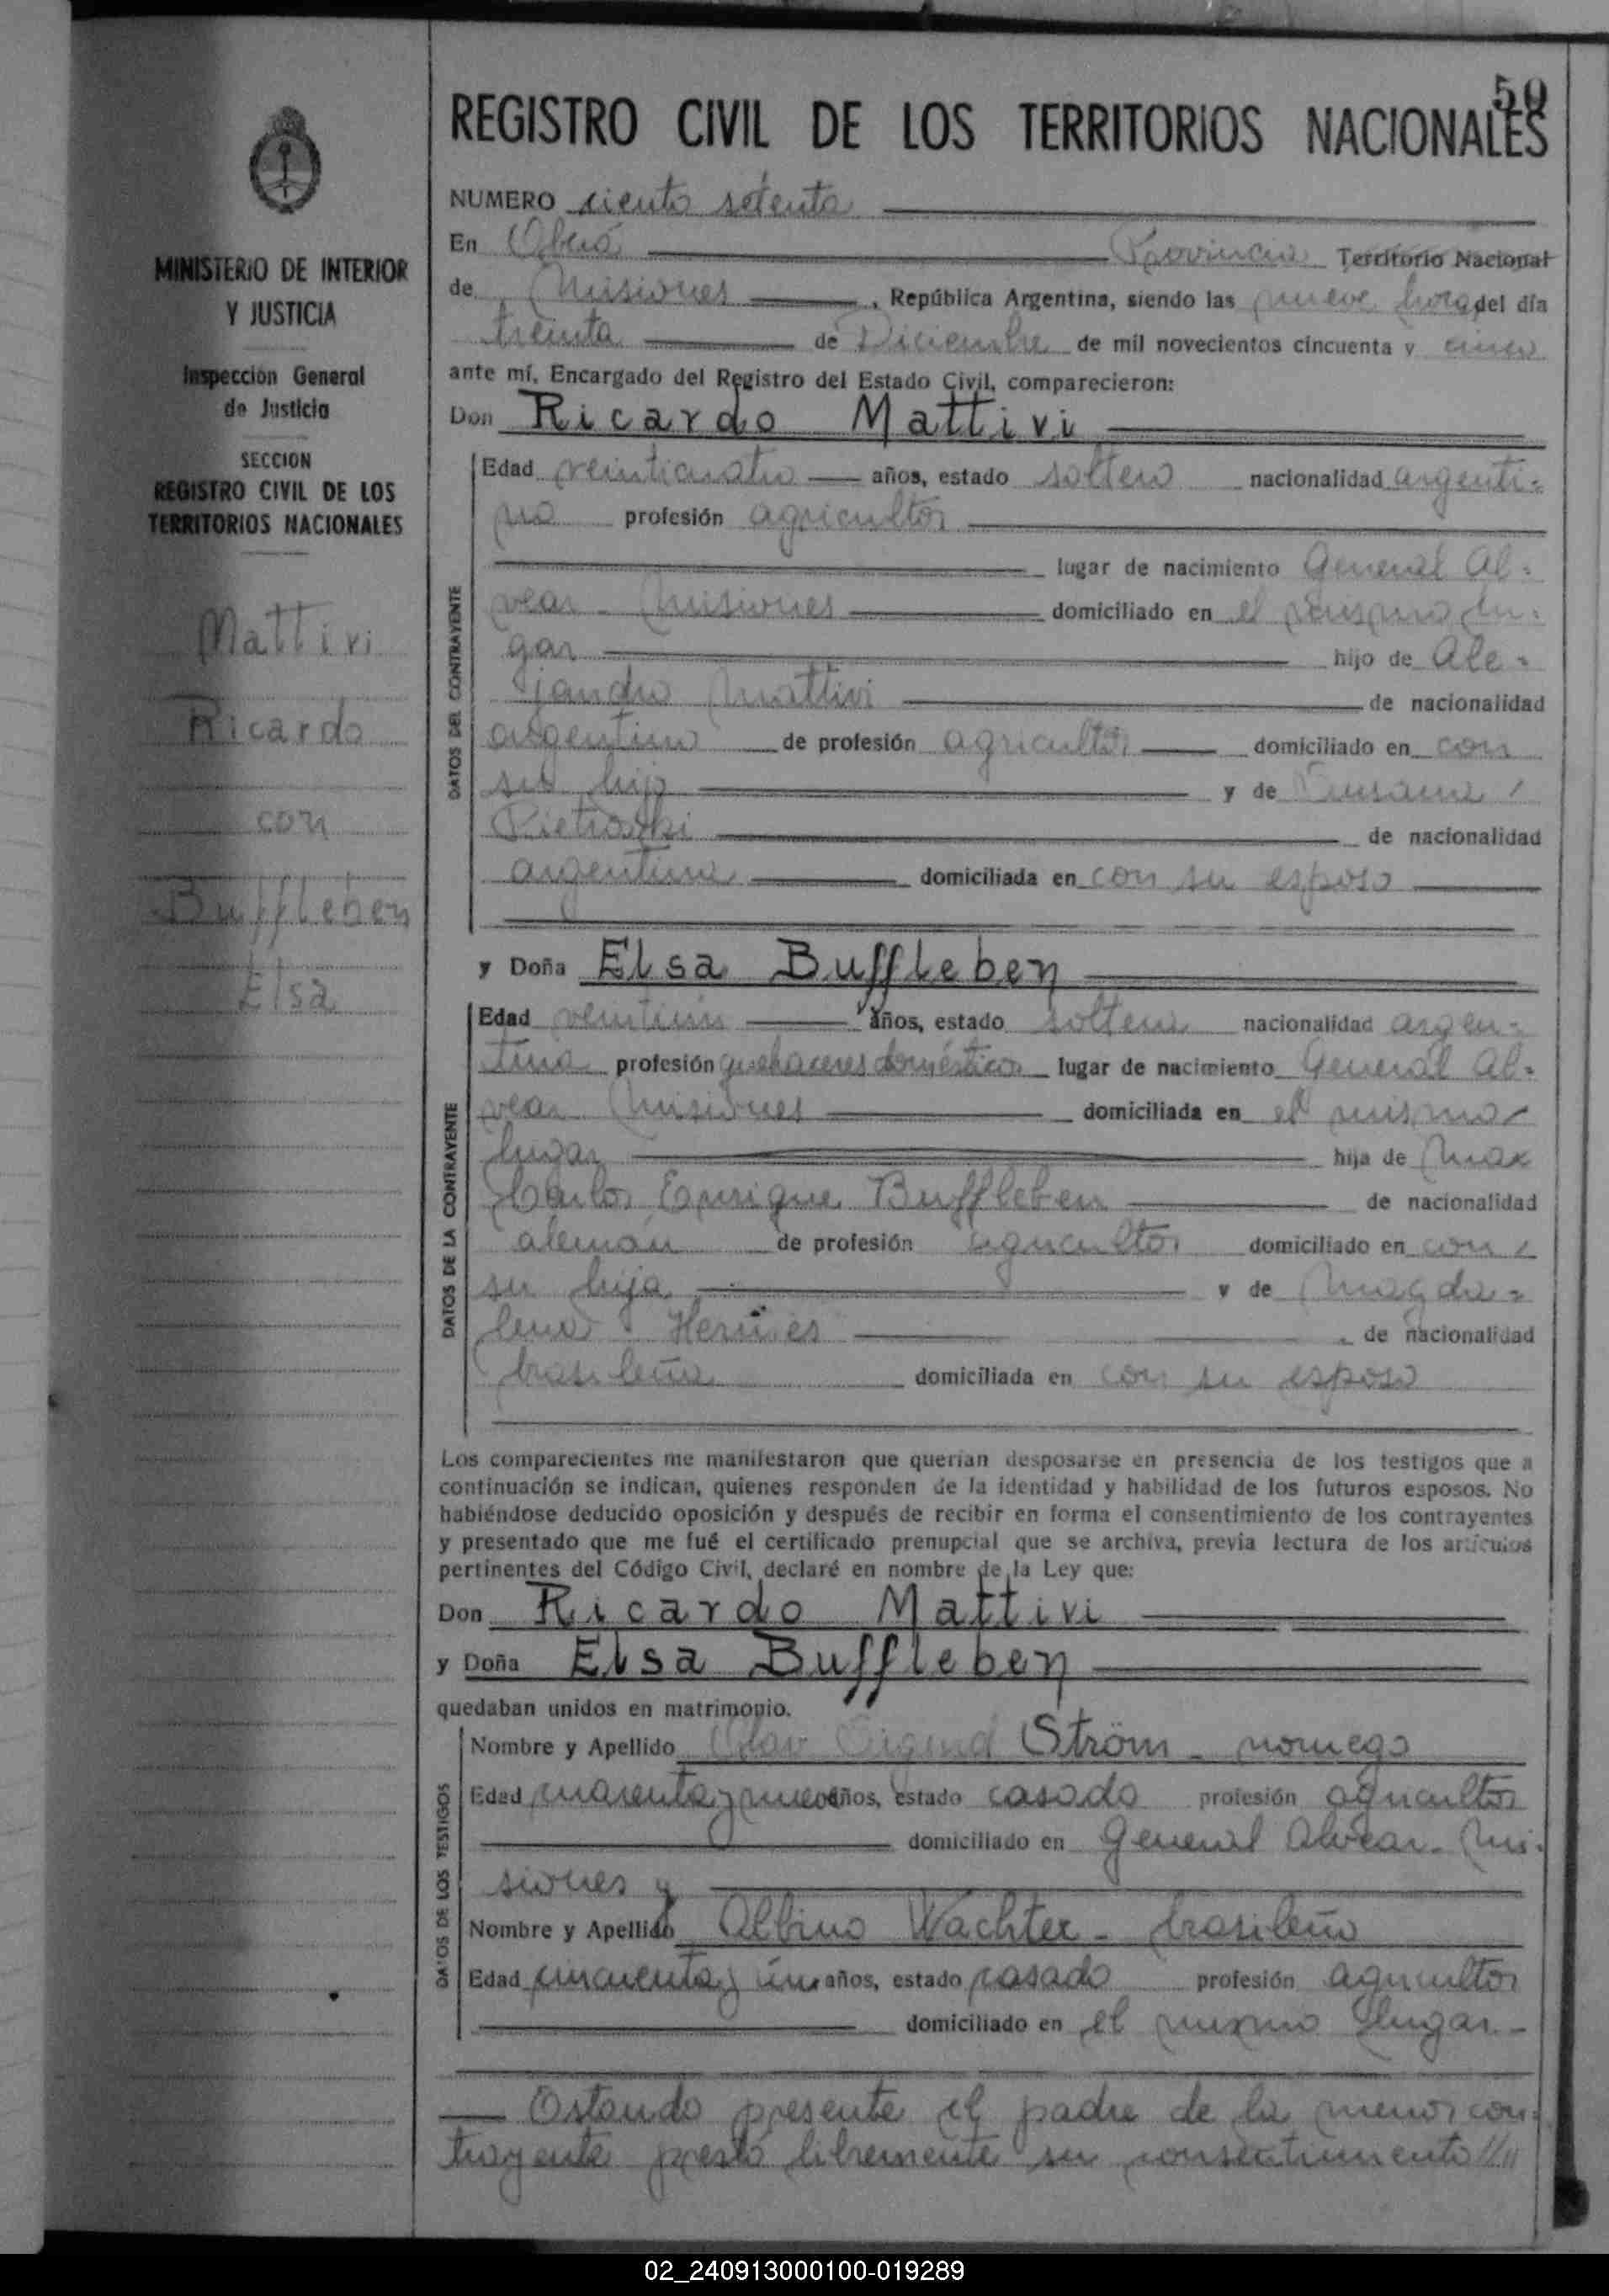 50
REGISTRO CIVIL DE LOS TERRITORIOS NACIONALES
MINISTERIO DE INTERIOR
Y JUSTICIA
Inspección General
de Justicia
SECCION
REGISTRO CIVIL DE LOS
TERRITORIOS NACIONALES
Mattivi
Ricardo
con
Buffleben
Elsa
NUMERO ciento setenta
En Oberá Provincia Territorio Nacional
de Misiones, República Argentina, siendo las nueve horas del día
treinta de Diciembre de mil novecientos cincuenta y cinco
ante mí, Encargado del Registro del Estado Civil, comparecieron:
Don Ricardo Mattivi
DATOS DEL CONTRAYENTE
Edad veinticuatro años, estado soltero nacionalidad argenti-
no profesión agricultor
lugar de nacimiento General Al-
vear - Misiones domiciliado en el mismo lu-
gar hijo de Ale-
jandro Mattivi de nacionalidad
argentino de profesión agricultor domiciliado en con
su hijo y de
Pietroski de nacionalidad
argentina domiciliada en con su esposo
y Doña Elsa Buffleben
DATOS DE LA CONTRAYENTE
Edad veintiún años, estado soltera nacionalidad argen-
tina profesión quehaceres domésticos lugar de nacimiento General Al-
vear Misiones domiciliada en el mismo
lugar hija de Max
Carlos Enrique Buffleben de nacionalidad
alemán de profesión agricultor domiciliado en con
su hija y de Magda-
lena Hermes de nacionalidad
brasileña domiciliada en con su esposo
Los comparecientes me manifestaron que querían desposarse en presencia de los testigos que a
continuación se indican, quienes responden de la identidad y habilidad de los futuros esposos. No
habiéndose deducido oposición y después de recibir en forma el consentimiento de los contrayentes
y presentado que me fué el certificado prenupcial que se archiva, previa lectura de los artículos
pertinentes del Código Civil, declaré en nombre de la Ley que:
Don Ricardo Mattivi
y Doña Elsa Buffleben
quedaban unidos en matrimonio.
DATOS DE LOS TESTIGOS
Nombre y Apellido Olav Sigurd Ström - noruego
Edad cuarenta y nueve años, estado casado profesión agricultor
domiciliado en General Alvear - Mi-
siones y
Nombre y Apellido Albino Wachter - brasileño
Edad cincuenta y un años, estado casado profesión agricultor
domiciliado en el mismo lugar.-
Estando presente el padre de la menor con-
trayente prestó libremente su consentimiento////
02_240913000100-019289